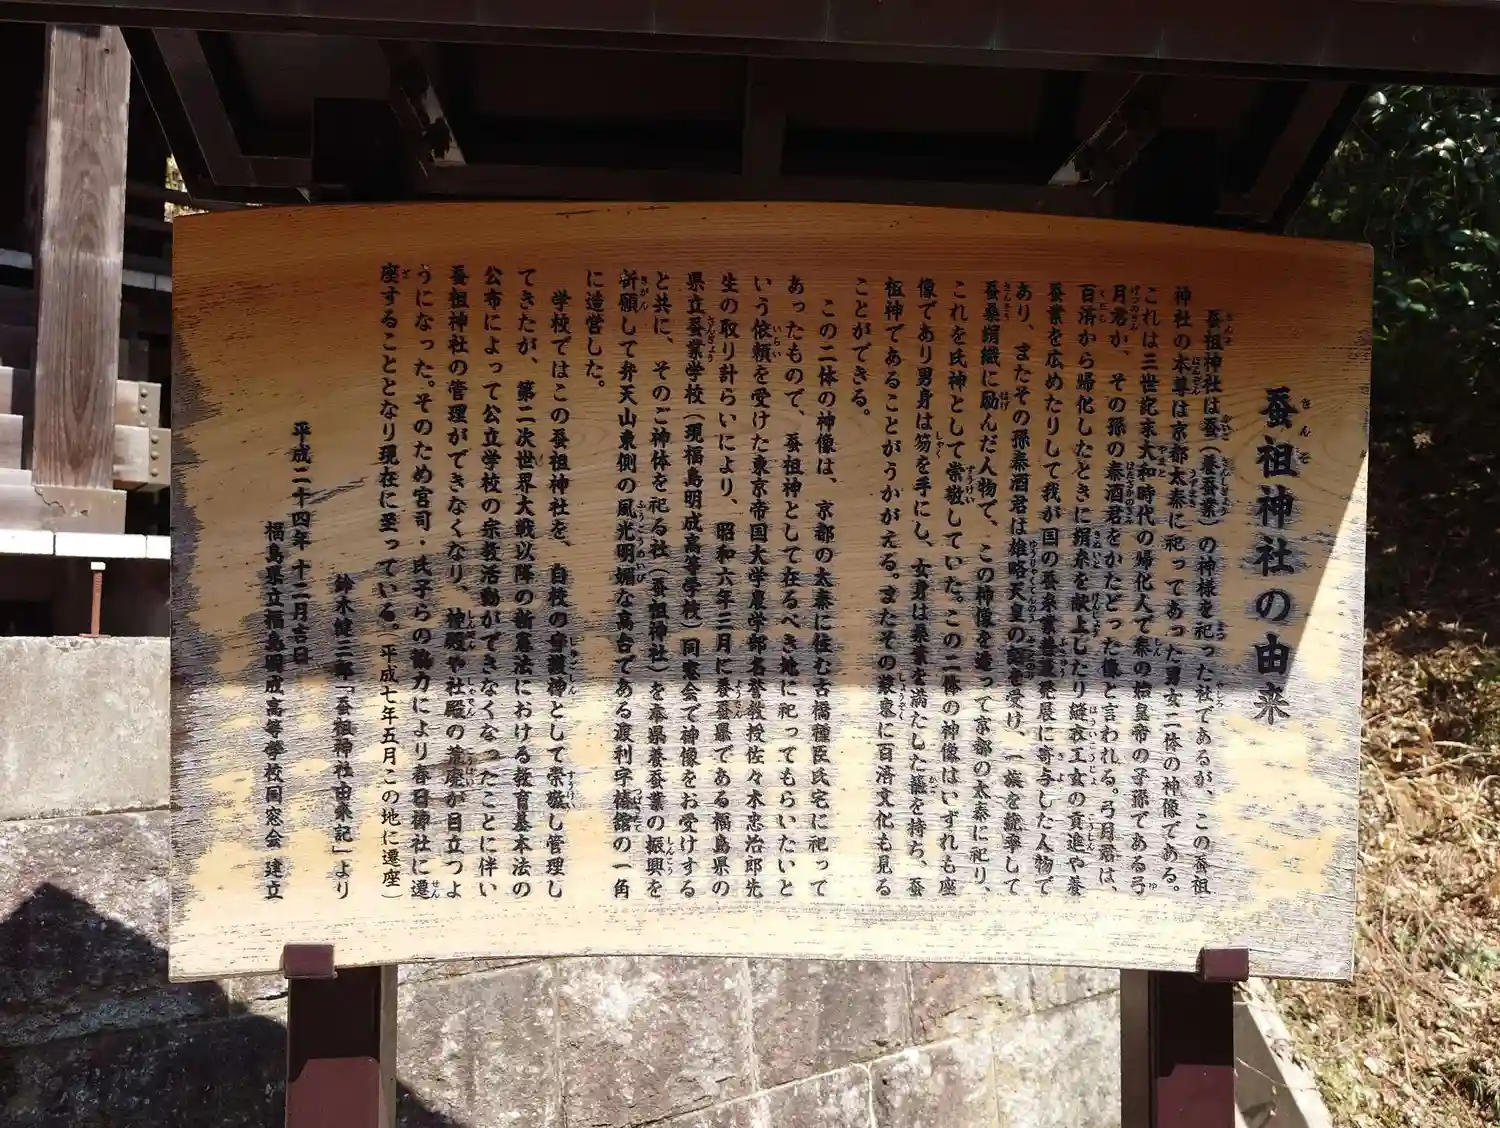 蚕祖神社の由来
さんそ
蚕祖神社は蚕(養蚕業)の神様を祀った社であるが、この蚕祖
神社の本尊は京都太秦に祀ってあった男女二体の神像である。
これは三世記末大和時代の帰化人で秦の始皇帝の子孫である弓
月君か、その孫の秦酒君をかたどった像と言われる。弓月君は、
百済から帰化したときに絹糸を献上したり縫衣工女の貢進や養
蚕業を広めたりして我が国の蚕糸業発展に寄与した人物で
あり、またその孫秦酒君は雄略天皇の を受け、一族を統率して
蚕桑絹織に励んだ人物で、この神像を造って京都の太秦に祀り、
これを氏神として崇敬していた。この二体の神像はいずれも座
像であり男身は笏を手にし、女身は桑葉を満たした籠を持ち、蚕
祖神であることがうかがえる。またその装束に百済文化も見る
ことができる。
この二体の神像は、京都の太秦に住む古橋種臣氏宅に祀って
あったもので、蚕祖神として在るべき地に祀ってもらいたいと
いう依頼を受けた東京帝国大学農学部名誉教授佐々木忠治郎先
生の取り計らいにより、昭和六年三月に養蚕県である福島県の
県立蚕業学校(現福島明成高等学校)同窓会で神像をお受けする
と共に、そのご神体を祀る社(蚕祖神社)を本県養蚕業の振興を
祈願して弁天山東側の風光明媚な高台である渡利字椿舘の一角
に造営した。
学校ではこの蚕祖神社を、自校の守護神として崇敬し管理し
てきたが、第二次世界大戦以降の新憲法における教育基本法の
公布によって公立学校の宗教活動ができなくなったことに伴い
蚕祖神社の管理ができなくなり、神殿や社殿の荒廃が目立つよ
うになった。そのため宮司・氏子らの協力により春日神社に遷
座することとなり現在に至っている。(平成七年五月この地に遷座)
鈴木健三郎「蚕祖神社由来記」より
平成二十四年十二月吉日
福島県立福島明成高等学校同窓会 建立